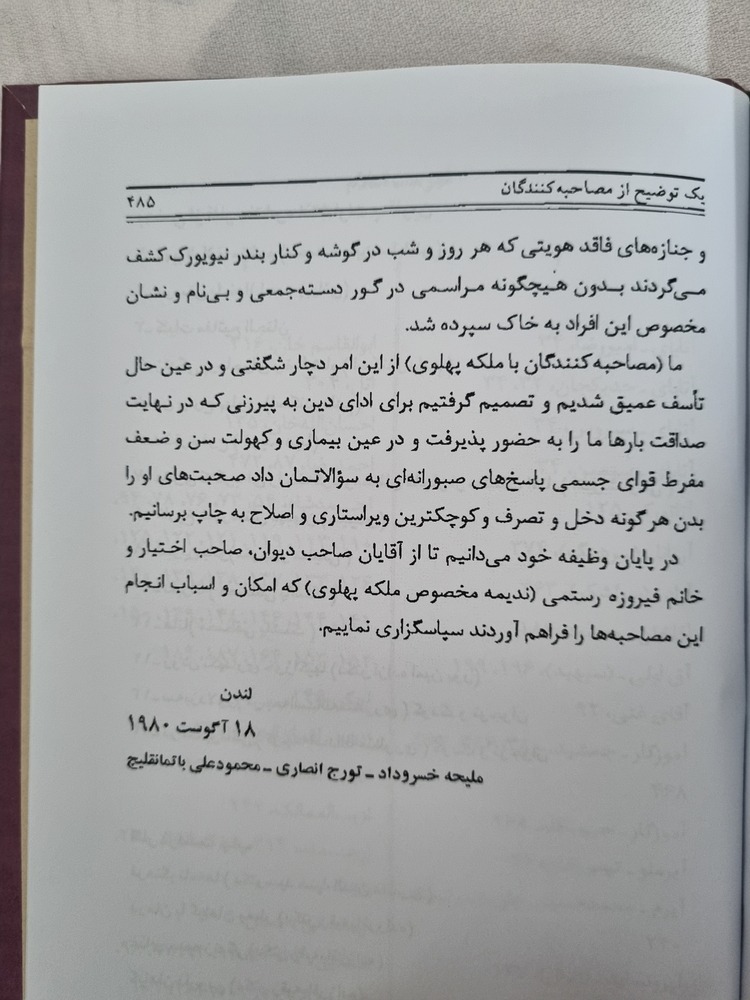 یک توضیح از مصاحبه‌کنندگان ۴۸۵
و جنازه‌های فاقد هویتی که هر روز و شب در گوشه و کنار بندر نیویورک کشف
می‌گردند بدون هیچگونه مراسمی در گور دسته‌جمعی و بی‌نام و نشان
مخصوص این افراد به خاک سپرده شد.
ما (مصاحبه‌کنندگان با ملکه پهلوی) از این امر دچار شگفتی و در عین حال
تأسف عمیق شدیم و تصمیم گرفتیم برای ادای دین به پیرزنی که در نهایت
صداقت بارها ما را به حضور پذیرفت و در عین بیماری و کهولت سن و ضعف
مفرط قوای جسمی پاسخ‌های صبورانه‌ای به سؤالاتمان داد صحبت‌های او را
بدن هرگونه دخل و تصرف و کوچکترین ویراستاری و اصلاح به چاپ برسانیم.
در پایان وظیفه خود می‌دانیم تا از آقایان صاحب دیوان، صاحب اختیار و
خانم فیروزه رستمی (ندیمه مخصوص ملکه پهلوی) که امکان و اسباب انجام
این مصاحبه‌ها را فراهم آوردند سپاسگزاری نماییم.
لندن
۱۸ آگوست ۱۹۸۰
ملیحه خسروداد ـ تورج انصاری ـ محمودعلی باتمانقلیج